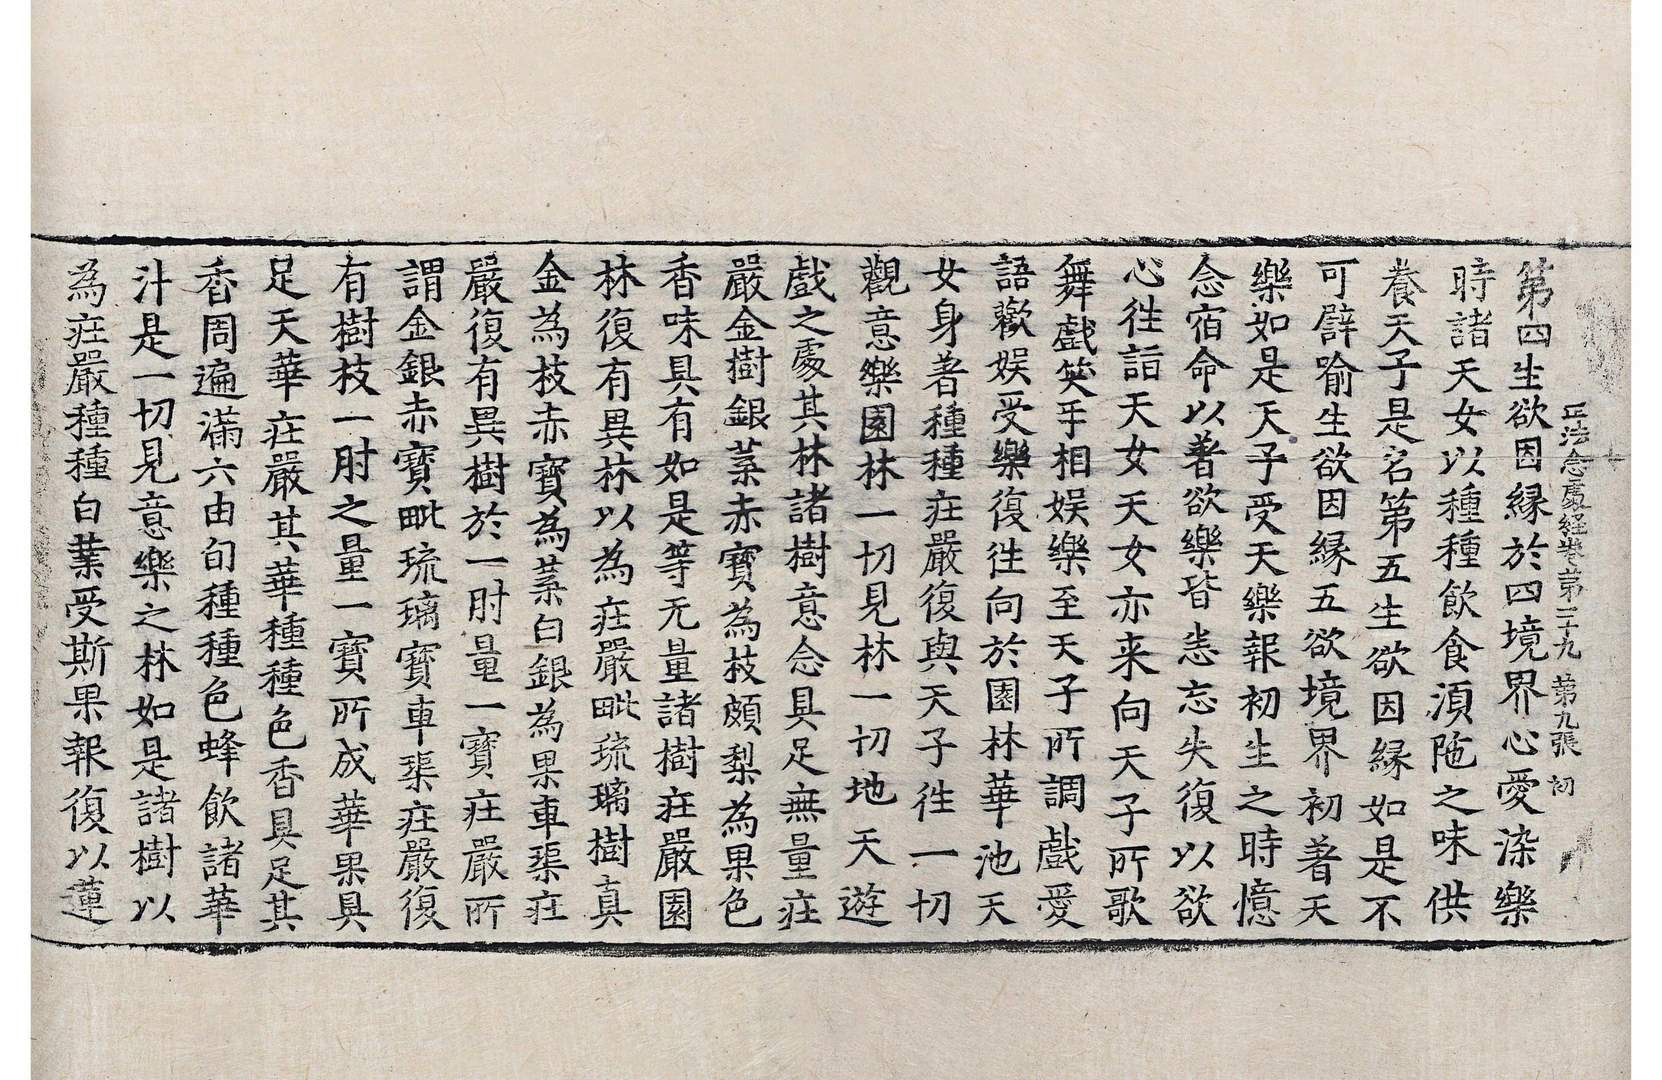 正法念處経巻第二十九　第九張　初
第四生欲因縁於四境界心愛染樂
時諸天女以種種飲食湏陁之味供
養天子是名第五生欲因縁如是不
可譬喻生欲因縁五欲境界初著天
樂如是天子受天樂報初生之時憶
念宿命以著欲樂皆悉忘失復以欲
心徃詣天女天女亦来向天子所歌
舞戲笑手相娯樂至天子所調戲愛
語歡娯受樂復徃向於園林華池天
女身著種種疘嚴復與天子徃一切
觀意樂園林一切見林一切地天遊
戲之處其林諸樹意念具足無量疘
嚴金樹銀葉赤寳為枝頗梨為果色
香味具有如是等无量諸樹疘嚴園
林復有異林以為疘嚴毗琉璃樹真
金為枝赤寳為葉白銀為果車渠疘
嚴復有異樹於一肘量一寳疘嚴所
謂金銀赤寳毗琉璃寳車渠疘嚴復
有樹枝一肘之量一寳所成華果具
足天華疘嚴其華種種色香具足其
香周遍滿六由旬種種色蜂飲諸華
汁是一切見意樂之林如是諸樹以
為疘嚴種種白業受斯果報復以蓮